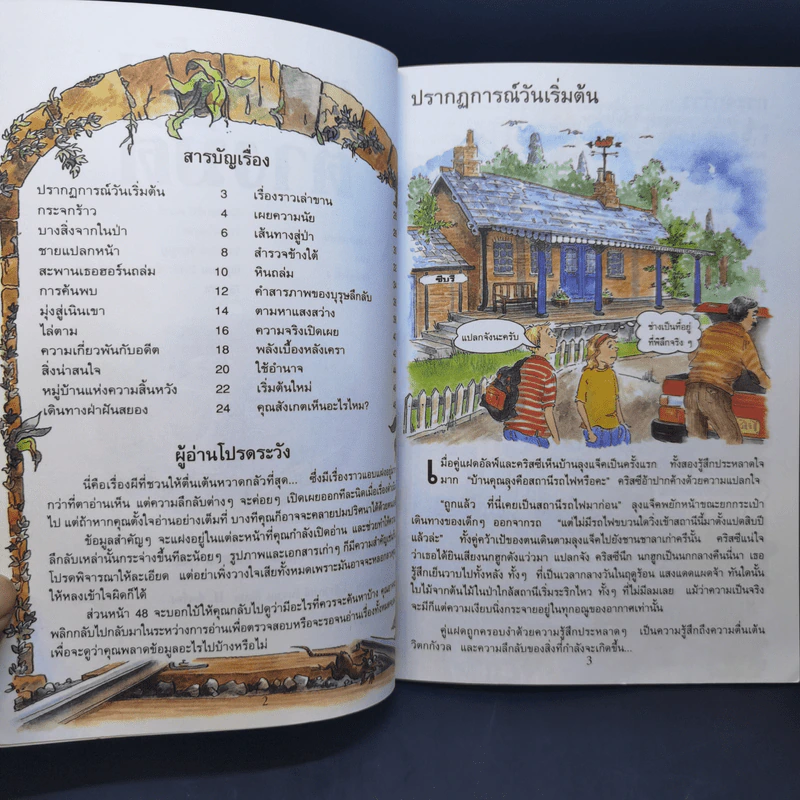 สารบัญเรื่อง
ปรากฏการณ์วันเริ่มต้น 3 เรื่องราวเล่าขาน
กระจกร้าว 4 เผยความนัย
บางสิ่งจากในป่า 6 เส้นทางสู่ป่า
ชายแปลกหน้า 8 สำรวจข้างใต้
สะพานเธอฮอร์นถล่ม 10 หินถล่ม
การค้นพบ 12 คำสารภาพของบุรุษลึกลับ
มุ่งสู่เนินเขา 14 ตามหาแสงสว่าง
ไล่ตาม 16 ความจริงเปิดเผย
ความเกี่ยวพันกับอดีต 18 พลังเบื้องหลังเครา
สิ่งน่าสนใจ 20 ใช้อำนาจ
หมู่บ้านแห่งความสิ้นหวัง 22 เริ่มต้นใหม่
เดินทางฝ่าฝันสยอง 24 คุณสังเกตเห็นอะไรไหม?
ผู้อ่านโปรดระวัง
นี่คือเรื่องผีที่ชวนให้ตื่นเต้นหวาดกลัวที่สุด... ซึ่งมีเรื่องราวแอบแฝงอยู่
กว่าที่ตาอ่านเห็น แต่ความลึกลับต่างๆ จะค่อยๆ เปิดเผยออกทีละนิดเมื่อเรื่อง
ไป แต่ถ้าหากคุณตั้งใจอ่านอย่างเต็มที่ บางทีคุณก็อาจจะคลายปมปริศนาได้ด้วย
ข้อมูลสำคัญๆ จะแฝงอยู่ในแต่ละหน้าที่คุณกำลังเปิดอ่าน และช่วยทำให้
ลึกลับเหล่านั้นกระจ่างขึ้นทีละน้อยๆ รูปภาพและเอกสารเก่าๆ ก็มีความสำคัญ
โปรดพิจารณาให้ละเอียด แต่อย่าเพิ่งวางใจเสียทั้งหมดเพราะมันอาจจะหลอก
ให้หลงเข้าใจผิดก็ได้
ส่วนหน้า 48 จะบอกใบ้ให้คุณกลับไปดูว่ามีอะไรที่ควรจะค้นหาบ้าง
พลิกกลับไปกลับมาในระหว่างการอ่านเพื่อตรวจสอบหรือจะรอจนอ่านเรื่อง
เพื่อจะดูว่าคุณพลาดข้อมูลอะไรไปบ้างหรือไม่
2
ปรากฏการณ์วันเริ่มต้น
ซีบรี
แปลกจังนะครับ
ช่างเป็นที่อยู่
ที่พิลึกจริง ๆ
เมื่อคู่แฝดอัลฟ์และคริสซีเห็นบ้านลุงแจ็คเป็นครั้งแรก ทั้งสองรู้สึกประหลาดใจ
มาก "บ้านคุณลุงคือสถานีรถไฟหรือคะ" คริสซีอ้าปากค้างด้วยความแปลกใจ
"ถูกแล้ว ที่นี่เคยเป็นสถานีรถไฟมาก่อน" ลุงแจ็คพยักหน้าขณะยกกระเป๋า
เดินทางของเด็กๆ ออกจากรถ "แต่ไม่มีรถไฟขบวนใดวิ่งเข้าสถานีนี้มาตั้งแปดสิบปี
แล้วล่ะ" ทั้งคู่คว้าเป้ของตนเดินตามลุงแจ็คไปยังชานชาลาเก่าคร่ำนี้ คริสซีแน่ใจ
ว่าเธอได้ยินเสียงนกฮูกดังแว่วมา แปลกจัง คริสซีนึก นกฮูกเป็นนกกลางคืนนี่นา เธอ
รู้สึกเย็นวาบไปทั้งหลัง ทั้งๆ ที่เป็นเวลากลางวันในฤดูร้อน แสงแดดแผดจ้า ทันใดนั้น
ใบไม้จากต้นไม้ในป่าใกล้สถานีเริ่มระริกไหว ทั้งๆ ที่ไม่มีลมเลย แม้ว่าความเป็นจริง
จะมีก็แต่ความเงียบนิ่งกระจายอยู่ในทุกอณูของอากาศเท่านั้น
คู่แฝดถูกครอบงำด้วยความรู้สึกประหลาดๆ เป็นความรู้สึกถึงความตื่นเต้น
วิตกกังวล และความลึกลับของสิ่งที่กำลังจะเกิดขึ้น...
3